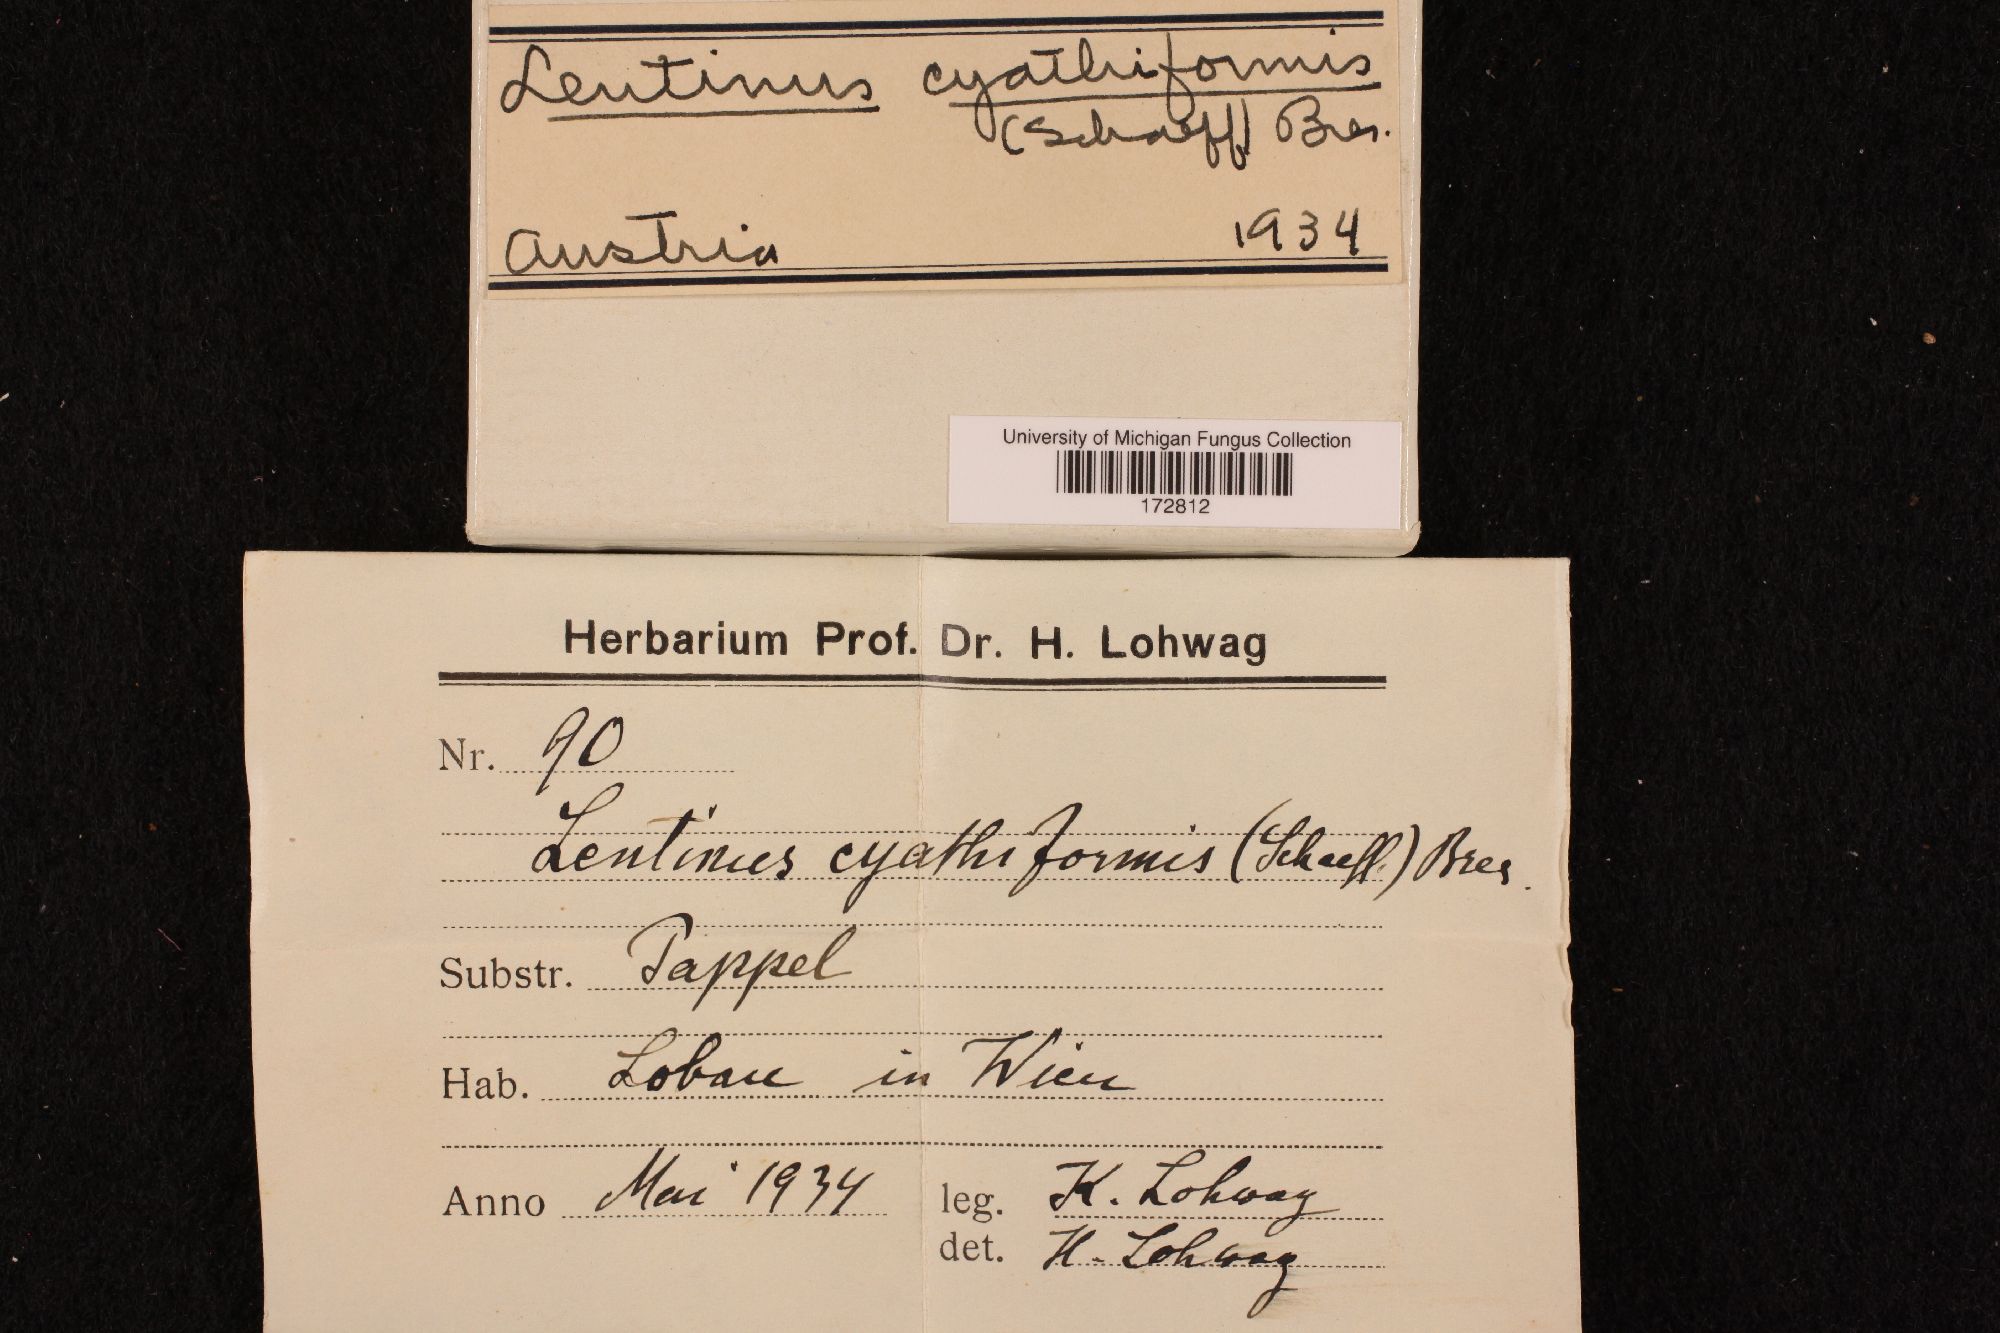 Lentinus cyathiformis
(Schaeff) Bres.
Austria 1934
University of Michigan Fungus Collection
172812
Herbarium Prof. Dr. H. Lohwag
Nr. 90
Lentinus cyathiformis (Schaeff.) Bres.
Substr. Pappel
Hab. Lobau in Wien
Anno Mai 1934 leg. K. Lohwag
det. H. Lohwag